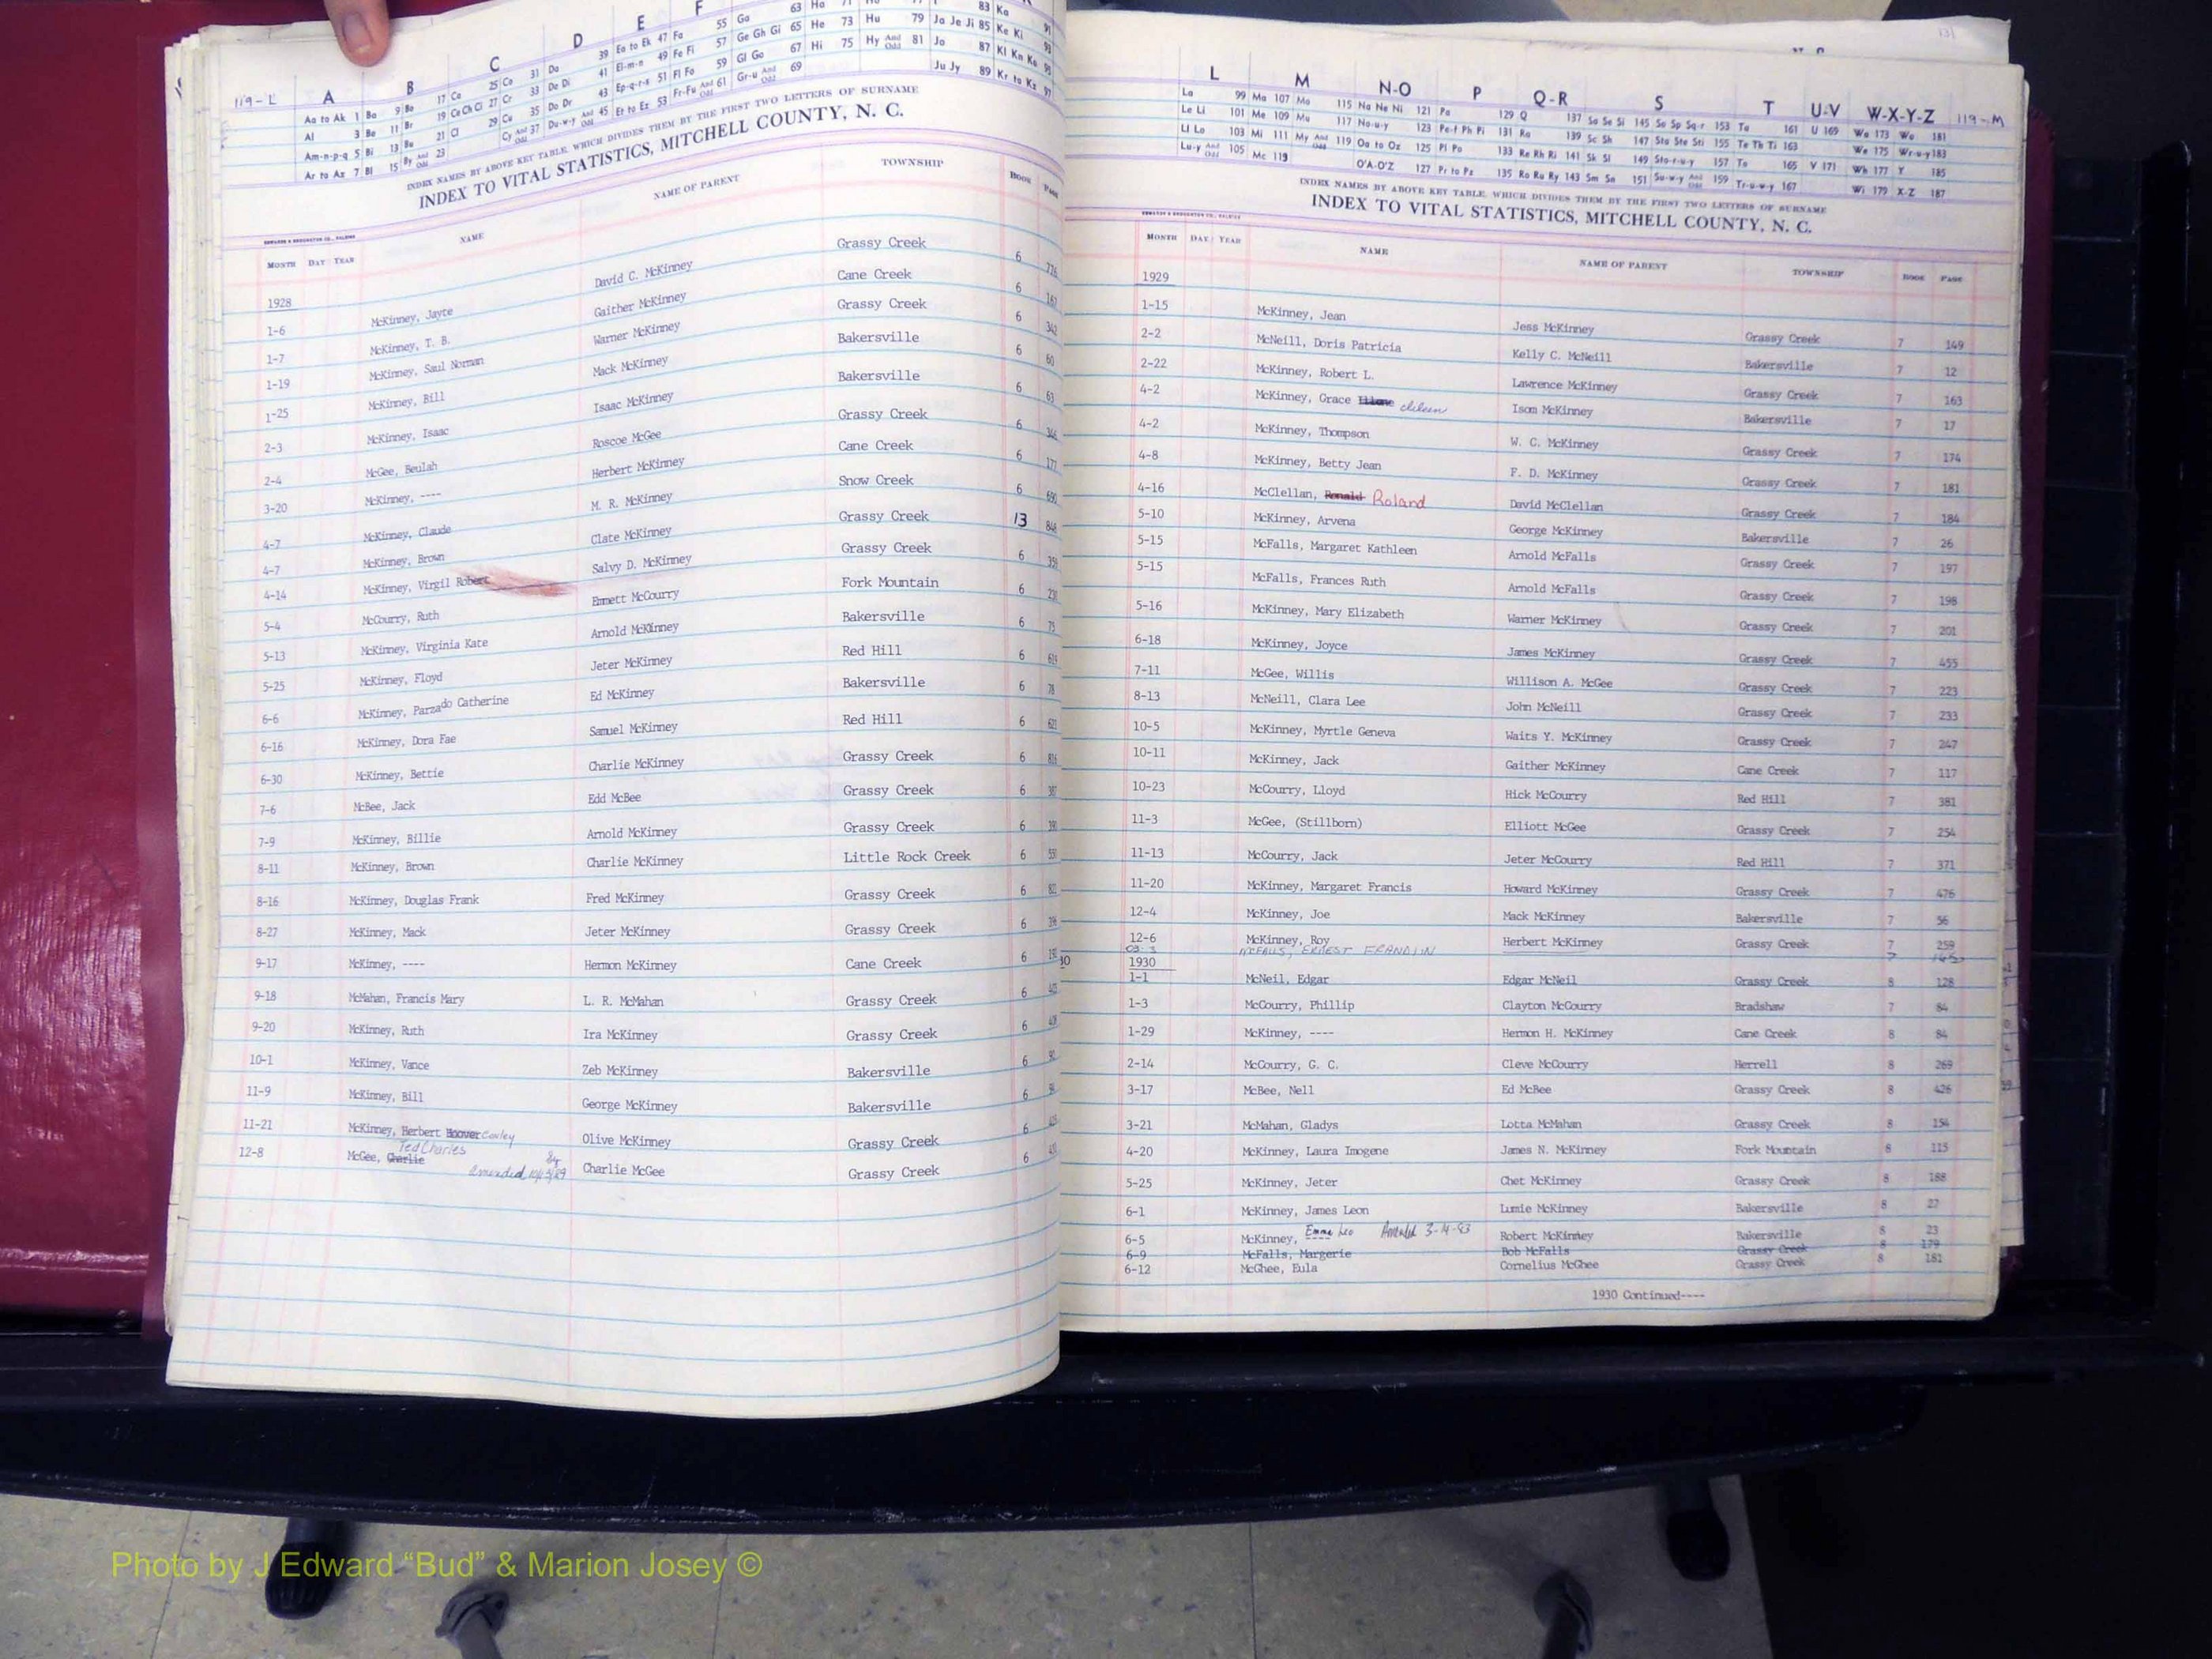 119-L
A B C D E F
Aa to Ak 1 Ba 9 Bo 17 Ca 25 Co 31 Da 39 Ea to Ek 47 Fa 55 Ga 63 Ha 71
Al 3 Be 11 Br 19 Ce Ch Ci 27 Cr 33 De Di 41 El-m-n 49 Fe Fi 57 Ge Gh Gi 65 He 73 Hu 79 Ja Je Ji 85 Ke Ki
Am-n-p-q 5 Bi 13 Bu 21 Cl 29 Cu 35 Do Dr 43 Ep-q-r-s 51 Fl Fo 59 Gl Go 67 Hi 75 Hy And Odd 81 Jo 87 Kl Kn Ko 95
Ar to Az 7 Bl 15 By And Odd 23 Cy And Odd 37 Du-w-y And Odd 45 Et to Ez 53 Fr-Fu And Odd 61 Gr-u And Odd 69 Ju Jy 89 Kr to Kz 97
INDEX NAMES BY ABOVE KEY TABLE, WHICH DIVIDES THEM BY THE FIRST TWO LETTERS OF SURNAME
INDEX TO VITAL STATISTICS, MITCHELL COUNTY, N. C.
EDWARDS & BROUGHTON CO., RALEIGH
MONTH DAY YEAR NAME NAME OF PARENT TOWNSHIP BOOK PAGE
1928
1-6 McKinney, Jayte David C. McKinney Grassy Creek 6
1-7 McKinney, T. B. Gaither McKinney Cane Creek 6
1-19 McKinney, Saul Norman Warner McKinney Grassy Creek 6 342
1-25 McKinney, Bill Mack McKinney Bakersville 6 60
2-3 McKinney, Isaac Isaac McKinney Bakersville 6 63
2-4 McGee, Beulah Roscoe McGee Grassy Creek 6
3-20 McKinney, ---- Herbert McKinney Cane Creek 6 177
4-7 McKinney, Claude M. R. McKinney Snow Creek 6 690
4-7 McKinney, Brown Clate McKinney Grassy Creek 13
4-14 McKinney, Virgil Robert Salvy D. McKinney Grassy Creek 6
5-4 McCourry, Ruth Emmett McCourry Fork Mountain 6
5-13 McKinney, Virginia Kate Arnold McKinney Bakersville 6 75
5-25 McKinney, Floyd Jeter McKinney Red Hill 6
6-6 McKinney, Parzado Catherine Ed McKinney Bakersville 6 78
6-16 McKinney, Dora Fae Samuel McKinney Red Hill 6
6-30 McKinney, Bettie Charlie McKinney Grassy Creek 6
7-6 McBee, Jack Edd McBee Grassy Creek 6
7-9 McKinney, Billie Arnold McKinney Grassy Creek 6
8-11 McKinney, Brown Charlie McKinney Little Rock Creek 6
8-16 McKinney, Douglas Frank Fred McKinney Grassy Creek 6
8-27 McKinney, Mack Jeter McKinney Grassy Creek 6
9-17 McKinney, ---- Hermon McKinney Cane Creek 6
9-18 McMahan, Francis Mary L. R. McMahan Grassy Creek 6
9-20 McKinney, Ruth Ira McKinney Grassy Creek 6
10-1 McKinney, Vance Zeb McKinney Bakersville 6
11-9 McKinney, Bill George McKinney Bakersville 6
11-21 McKinney, Herbert Hoover Conley Olive McKinney Grassy Creek 6
Ted Charles
12-8 McGee, Charlie Charlie McGee Grassy Creek 6
amended
L M N-O P Q-R S T U-V W-X-Y-Z 119-M
La 99 Ma 107 Mo 115 Na Ne Ni 121 Pa 129 Q 137 Sa Se Si 145 So Sp Sq-r 153 Ta 161 U 169 Wa 173 Wo 181
Le Li 101 Me 109 Mu 117 No-u-y 123 Pe-f Ph Pi 131 Ra 139 Sc Sh 147 Sta Ste Sti 155 Te Th Ti 163 We 175 Wr-u-y 183
Ll Lo 103 Mi 111 My And Odd 119 Oa to Oz 125 Pl Po 133 Re Rh Ri 141 Sk Sl 149 Sto-r-u-y 157 To 165 V 171 Wh 177 Y 185
Lu-y And Odd 105 Mc 113 O'A-O'Z 127 Pr to Pz 135 Ro Ru Ry 143 Sm Sn 151 Su-w-y And Odd 159 Tr-u-w-y 167 Wi 179 X-Z 187
INDEX NAMES BY ABOVE KEY TABLE, WHICH DIVIDES THEM BY THE FIRST TWO LETTERS OF SURNAME
INDEX TO VITAL STATISTICS, MITCHELL COUNTY, N. C.
EDWARDS & BROUGHTON CO., RALEIGH
MONTH DAY YEAR NAME NAME OF PARENT TOWNSHIP BOOK PAGE
1929
1-15 McKinney, Jean Jess McKinney Grassy Creek 7 149
2-2 McNeill, Doris Patricia Kelly C. McNeill Bakersville 7 12
2-22 McKinney, Robert L. Lawrence McKinney Grassy Creek 7 163
4-2 McKinney, Grace Isom McKinney Bakersville 7 17
4-2 McKinney, Thompson W. C. McKinney Grassy Creek 7 174
4-8 McKinney, Betty Jean F. D. McKinney Grassy Creek 7 181
4-16 McClellan, Ronald Roland David McClellan Grassy Creek 7 184
5-10 McKinney, Arvena George McKinney Bakersville 7 26
5-15 McFalls, Margaret Kathleen Arnold McFalls Grassy Creek 7 197
5-15 McFalls, Frances Ruth Arnold McFalls Grassy Creek 7 198
5-16 McKinney, Mary Elizabeth Warner McKinney Grassy Creek 7 201
6-18 McKinney, Joyce James McKinney Grassy Creek 7 455
7-11 McGee, Willis Willison A. McGee Grassy Creek 7 223
8-13 McNeill, Clara Lee John McNeill Grassy Creek 7 233
10-5 McKinney, Myrtle Geneva Waits Y. McKinney Grassy Creek 7 247
10-11 McKinney, Jack Gaither McKinney Cane Creek 7 117
10-23 McCourry, Lloyd Hick McCourry Red Hill 7 381
11-3 McGee, (Stillborn) Elliott McGee Grassy Creek 7 254
11-13 McCourry, Jack Jeter McCourry Red Hill 7 371
11-20 McKinney, Margaret Francis Howard McKinney Grassy Creek 7 476
12-4 McKinney, Joe Mack McKinney Bakersville 7 56
12-6 McKinney, Roy Herbert McKinney Grassy Creek 7 259
03-3 McFALLS, ERNEST FRANDLIN 7
1930
1-1 McNeil, Edgar Edgar McNeil Grassy Creek 8 128
1-3 McCourry, Phillip Clayton McCourry Bradshaw 7 84
1-29 McKinney, ---- Hermon H. McKinney Cane Creek 8 84
2-14 McCourry, G. C. Cleve McCourry Herrell 8 269
3-17 McBee, Nell Ed McBee Grassy Creek 8 426
3-21 McMahan, Gladys Lotta McMahan Grassy Creek 8 154
4-20 McKinney, Laura Imogene James N. McKinney Fork Mountain 8 115
5-25 McKinney, Jeter Chet McKinney Grassy Creek 8 188
6-1 McKinney, James Leon Lumie McKinney Bakersville 8 27
6-5 McKinney, Emma Leo Amended 3-14-83 Robert McKinney Bakersville 8 23
6-9 McFalls, Margerie Bob McFalls Grassy Creek 8 179
6-12 McGhee, Eula Cornelius McGhee Grassy Creek 8 181
1930 Continued----
Photo by J Edward “Bud” & Marion Josey ©